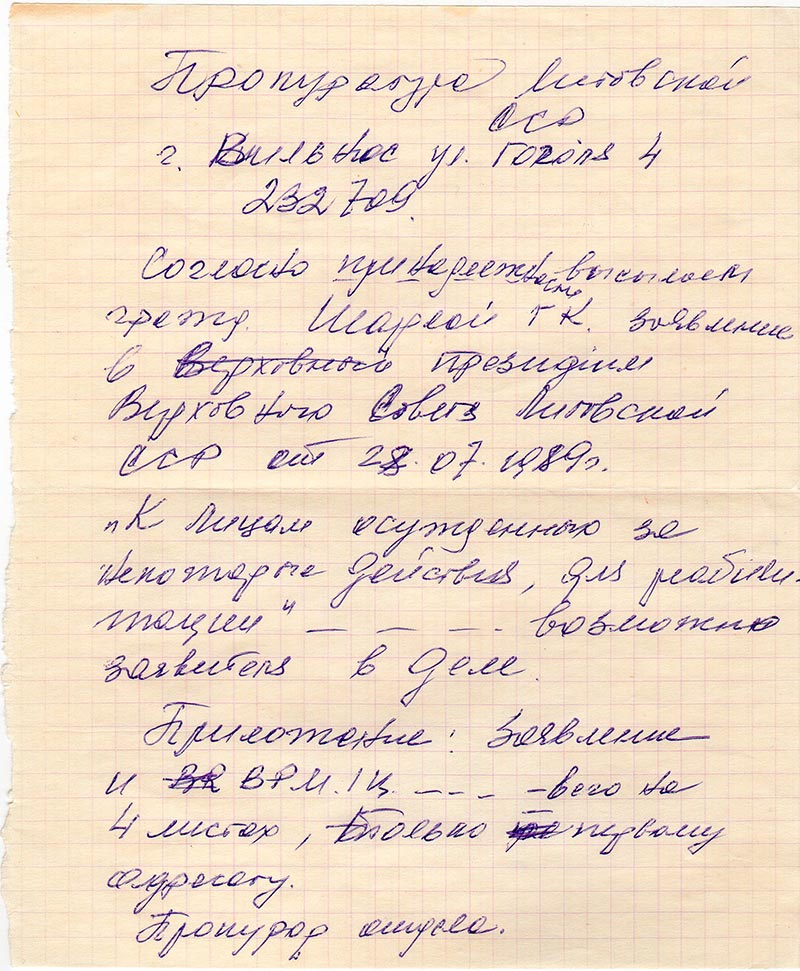 Пропуратура Литовской
ССР
г. Вильнос ул. Гоголя 4
232709.
Согласно принадлежности высылаем
гражд. Шарлой Г К. заявление
в Верховный президиум
Верховного Совета Литовской
ССР от 28.07.1989г.
"К Лицам осужденно за
некоторые действия, для реабили-
тации" — — — — возможно
заявителя в деле.
Приложение: Заявление
и ВРМ. 1 ц. — — — — всего на
4 листах, только первому
адресату.
Пропурор отдела.